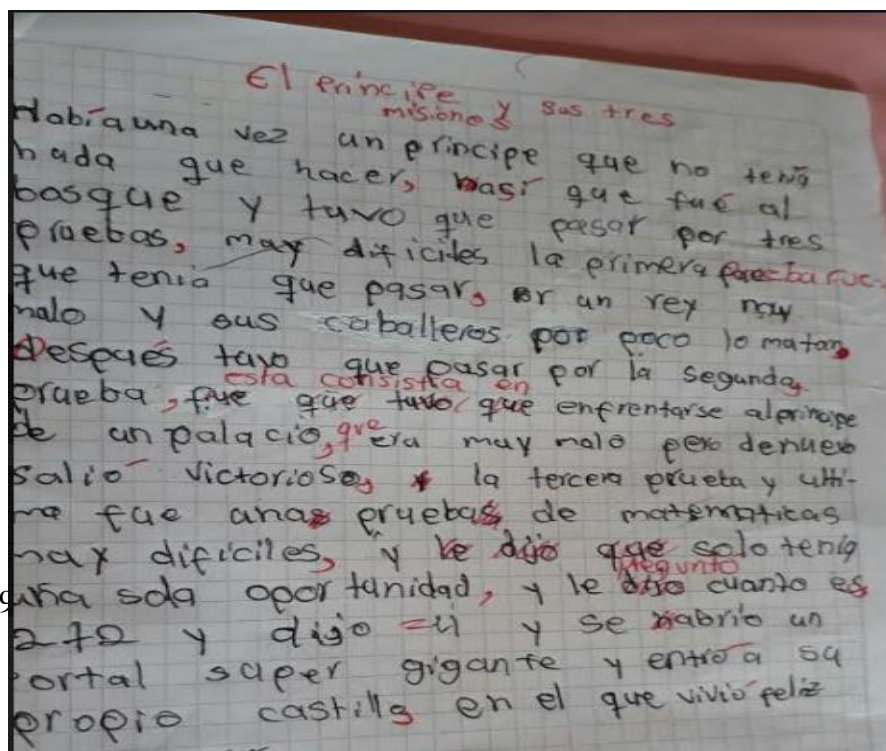 El principe
misiones y sus tres
Habia una vez un principe que no tenia
nada que hacer, asi que fue al
bosque y tuvo que pasar por tres
pruebas, muy dificiles la primera prueba fue
que tenia que pasar, por un rey muy
malo y sus caballeros por poco lo matan
Después tuvo que pasar por la segunda,
esta consistia en
prueba, fue que tuvo que enfrentarse al principe
de un palacio, que era muy malo pero denuevo
salio victorioso, la tercera prueba y ulti-
ma fue unas pruebas de matematicas
muy dificiles, y le dijo que solo tenia
pregunto
una sola oportunidad, y le dijo cuanto es
2+2 y dijo =4 y se habrio un
portal super gigante y entro a su
propio castillo en el que vivió feliz